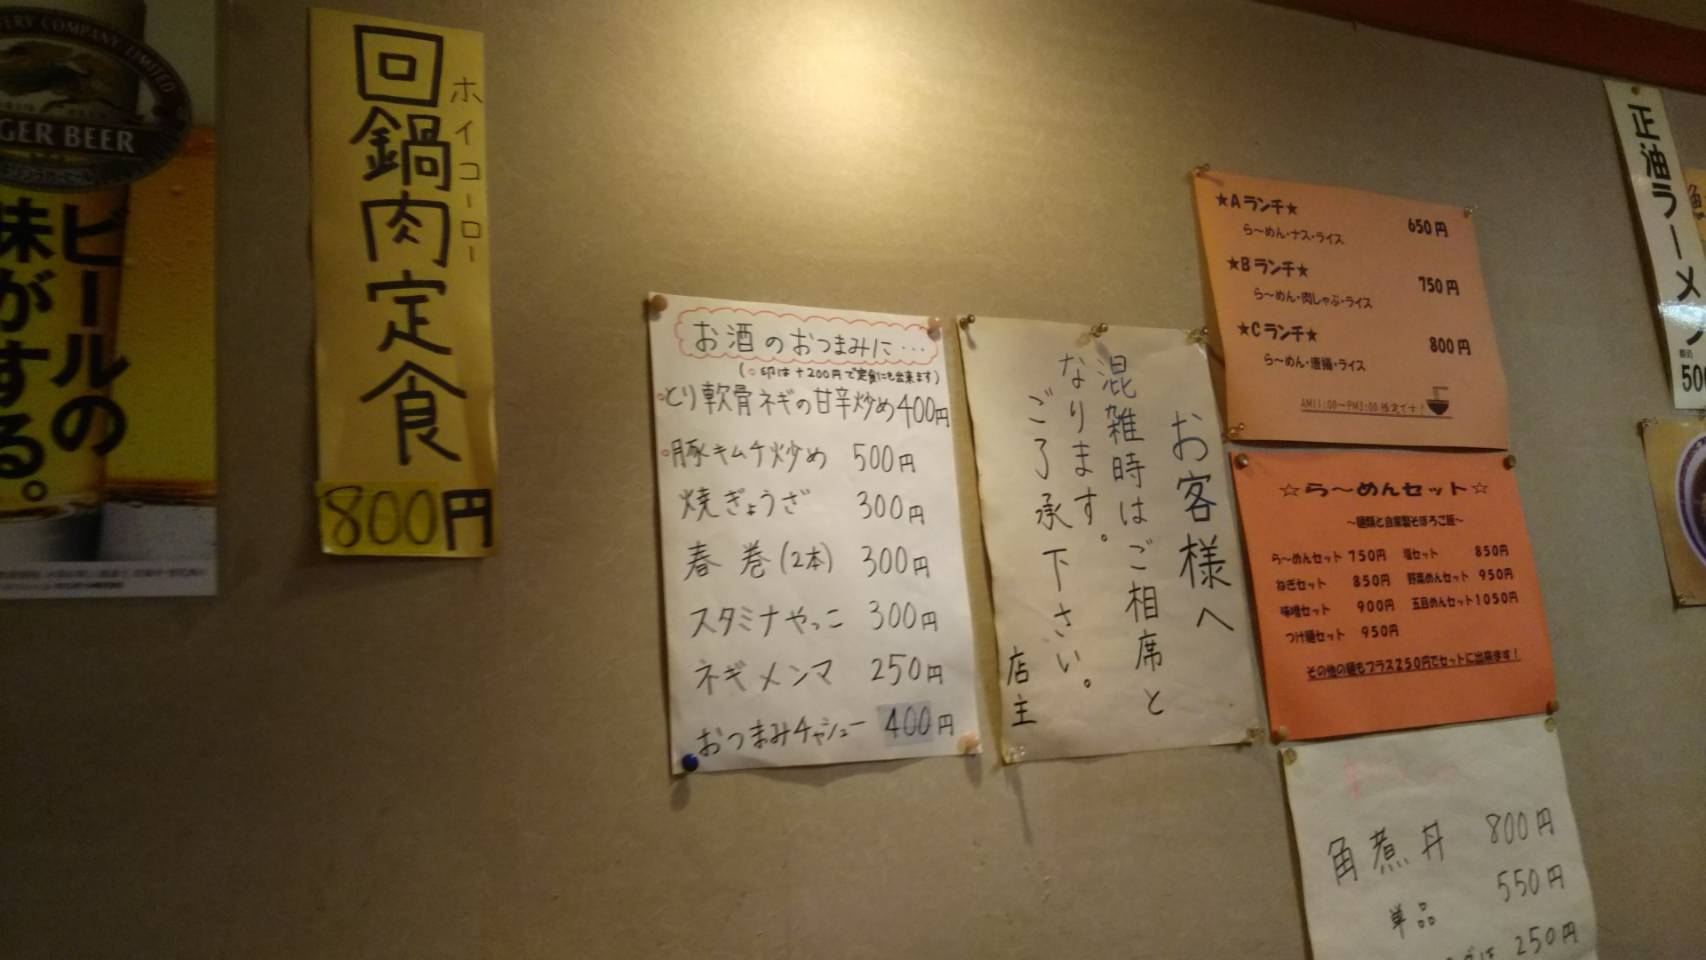 ERY COMPANY LIMITED
GER BEER
ビールの
味がする。
回鍋肉定食
ホイコーロー
800円
お酒のおつまみに…
(○印は+200円で定食にも出来ます)
○とり軟骨ネギの甘辛炒め400円
○豚キムチ炒め 500円
焼ぎょうざ 300円
春巻(2本) 300円
スタミナやっこ 300円
ネギメンマ 250円
おつまみチャシュー 400円
お客様へ
混雑時はご相席と
なります。
ご了承下さい。
店主
★Aランチ★ 650円
ら〜めん・ナス・ライス
★Bランチ★ 750円
ら〜めん・肉しゃぶ・ライス
★Cランチ★ 800円
ら〜めん・唐揚・ライス
AM11:00〜PM3:00迄です!
☆ら〜めんセット☆
〜麺類と自家製そぼろご飯〜
ら〜めんセット 750円 塩セット 850円
ねぎセット 850円 野菜めんセット 950円
味噌セット 900円 五目めんセット1050円
つけ麺セット 950円
その他の麺もプラス250円でセットに出来ます!
角煮丼 800円
単品 550円
250円
正油ラーメン
税込
500